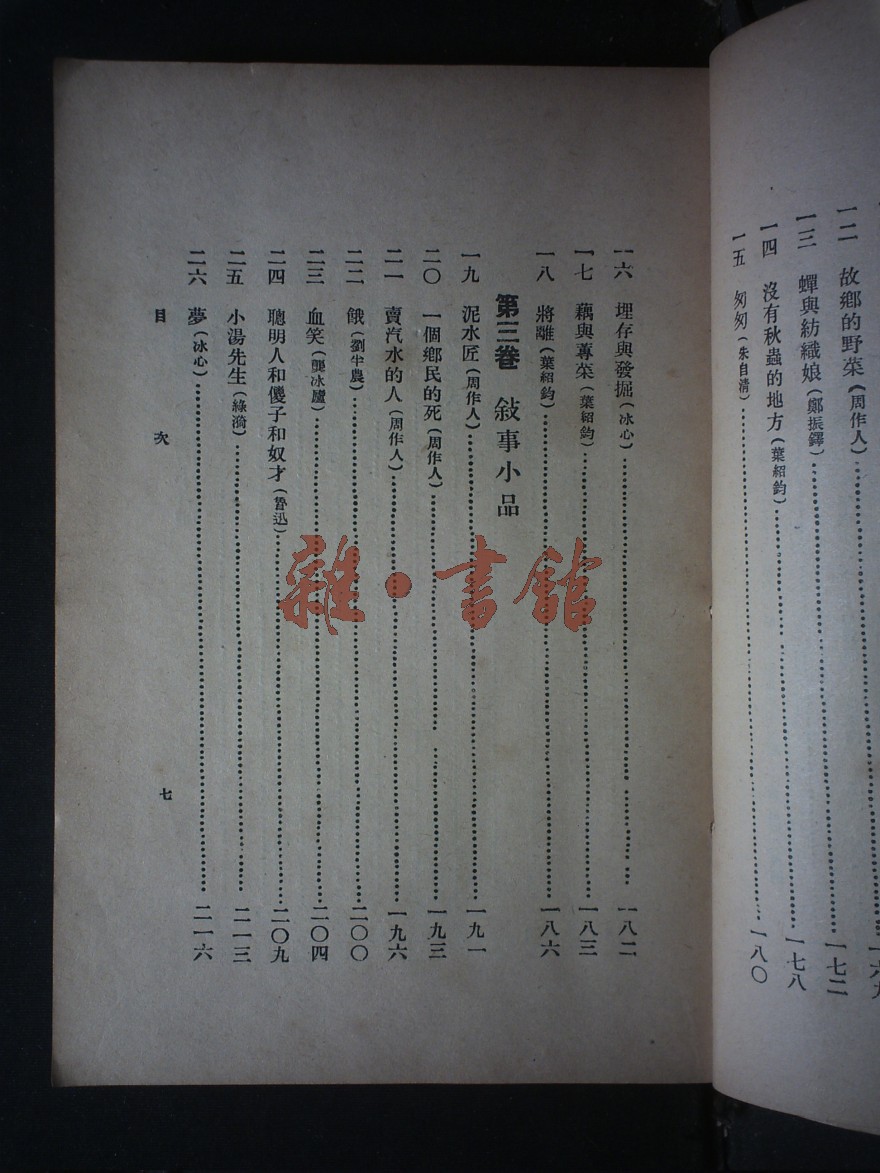 一二 故鄉的野菜(周作人)一七二
一三 蟬與紡織娘(鄭振鐸)一七八
一四 沒有秋蟲的地方(葉紹鈞)
一五 匆匆(朱自清)一八〇
一六 埋存與發掘(冰心)一八二
一七 藕與蓴菜(葉紹鈞)一八三
一八 將離(葉紹鈞)一八六
第三卷 敍事小品
一九 泥水匠(周作人)一九一
二〇 一個鄉民的死(周作人)一九三
二一 賣汽水的人(周作人)一九六
二二 餓(劉半農)二〇〇
二三 血笑(龔冰廬)二〇四
二四 聰明人和傻子和奴才(魯迅)二〇九
二五 小湯先生(綠漪)二一三
二六 夢(冰心)二一六
目次 七
雜·書館